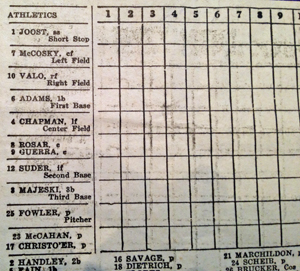 ATHLETICS 1 2 3 4 5 6 7 8 9
1 JOOST, ss
Short Stop
7 McCOSKY, cf
Left Field
10 VALO, rf
Right Field
6 ADAMS, 1b
First Base
4 CHAPMAN, lf
Center Field
8 ROSAR, c
9 GUERRA, c
12 SUDER, if
Second Base
3 MAJESKI, 3b
Third Base
25 FOWLER, p
Pitcher
23 McCAHAN, p
17 CHRISTO'ER, p
2 HANDLEY, 2b
FAIN, 1b
16 SAVAGE, p
18 DIETRICH, p
21 MARCHILDON,
24 SCHEIB, p
26 BRUCKER, Coa